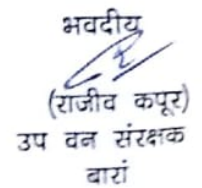 भवदीय
(राजीव कपूर)
उप वन संरक्षक
बारां